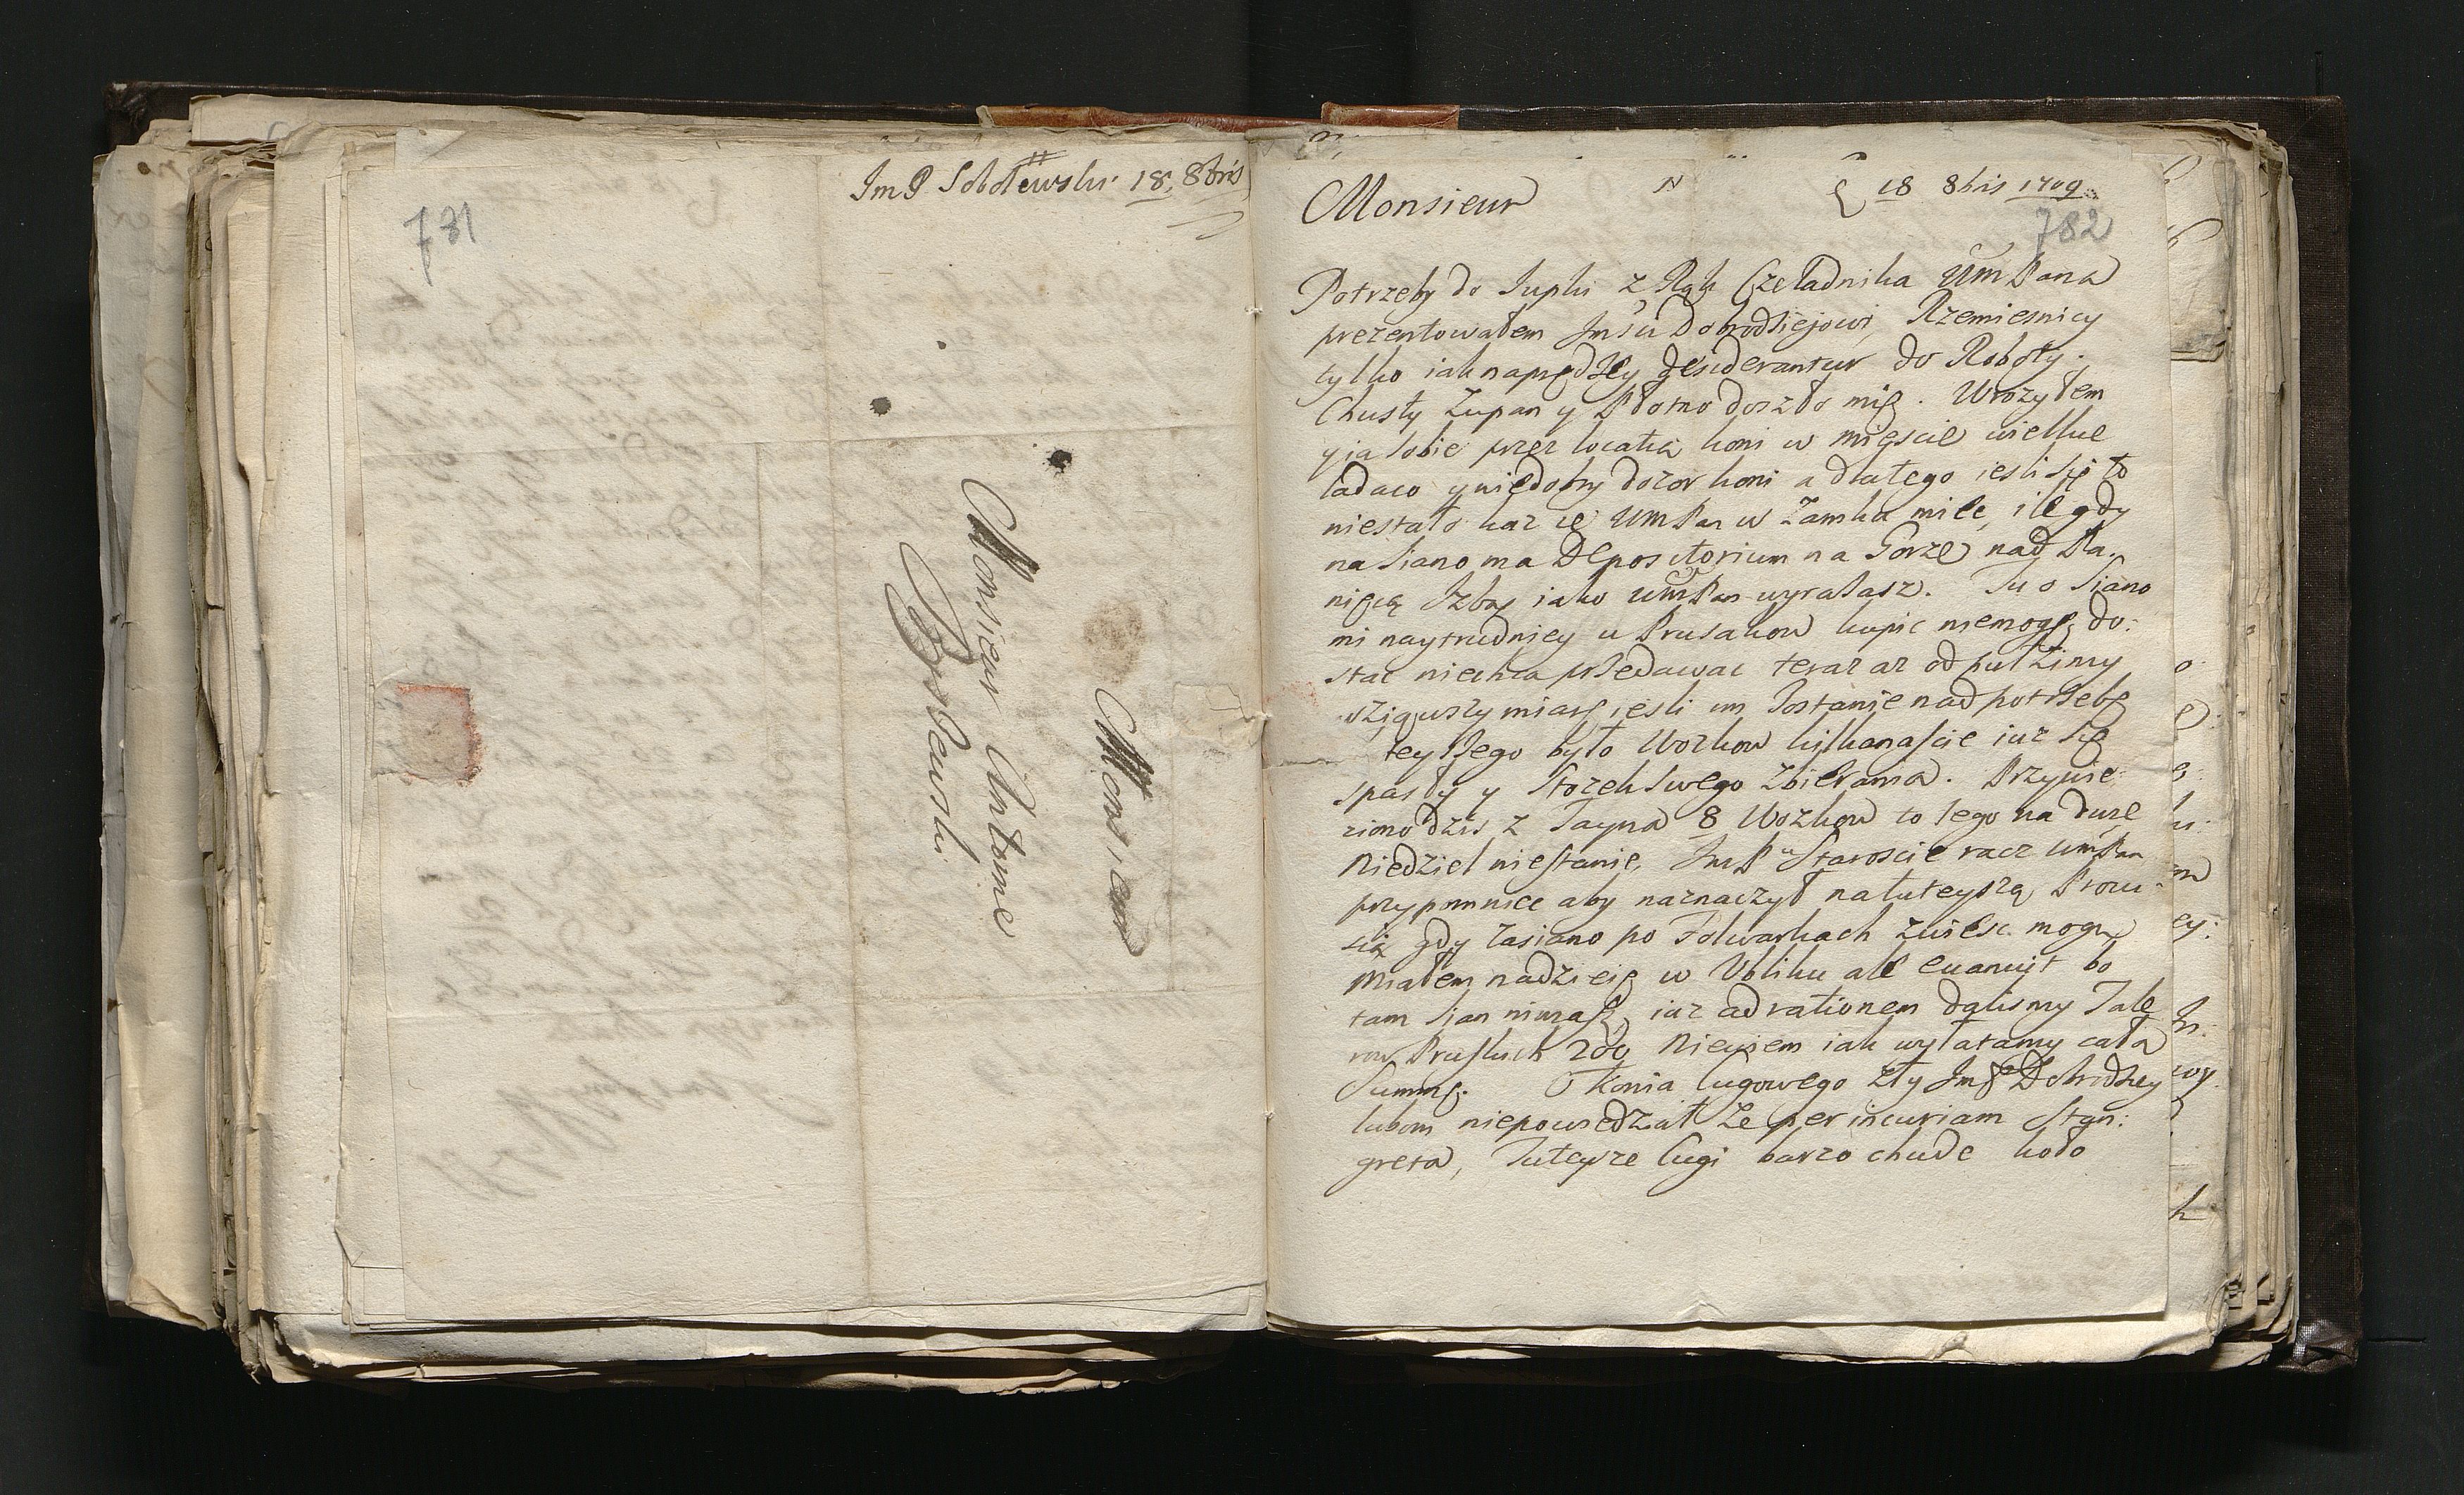 731
Im P Sobolewski 18. 8bris
Monsieur
Monsieur Antoine
Monsieur
N
18 8bris 1709
782
Potrzeby do Iupki z Rąk Czeladnika WmPana
prezentowałem Dobrodziejowi, Rzemiesnicy
tylko iaknaprędzey desiderantur do Roboty.
Chusty Zupan y Płotno doszło mię. Wrozyłem
y ia sobie przez locatia koni w miescie wielkie
ladaco y niedobry dozor koni a dlatego iesli się to
niestało kaz ie WmPan w Zamku miec, ile gdy
na Siano ma Depositorium na Gorze nad
Izbą iako WmPan wyrazasz. Tu o Siano
mi naytrudniey u Prusakow kupic niemogę do:
stac niechca przedawac teraz az od puł Zimy
wziąwszy miarę iesli im zostanie nad potrzebę
było Wozkow kilkanascie iuz się
spasły y Stozek swego zbierania. Przywie:
ziono dzis z Tayna 8 Wozkow to tego na dwie
Niedziel niestanie, ImPu Staroscie racz WmPan
przypomniec aby naznaczył na tuteyszą Prowi:
sią gdy zasiano po Folwarkach zwiesc mogą
Miałem nadzieię w Ubliku ale euanuit bo
tam sian nimasz, iuz ad rationem dalismy Tale
row Pruskich 200 Niewiem iak wyłatamy całą
Summę. O Konia Cugowego zły Dobrodziey
lubom niepowiedział ze per incuriam Stan:
greta, Tuteysze Cugi barzo chude koło